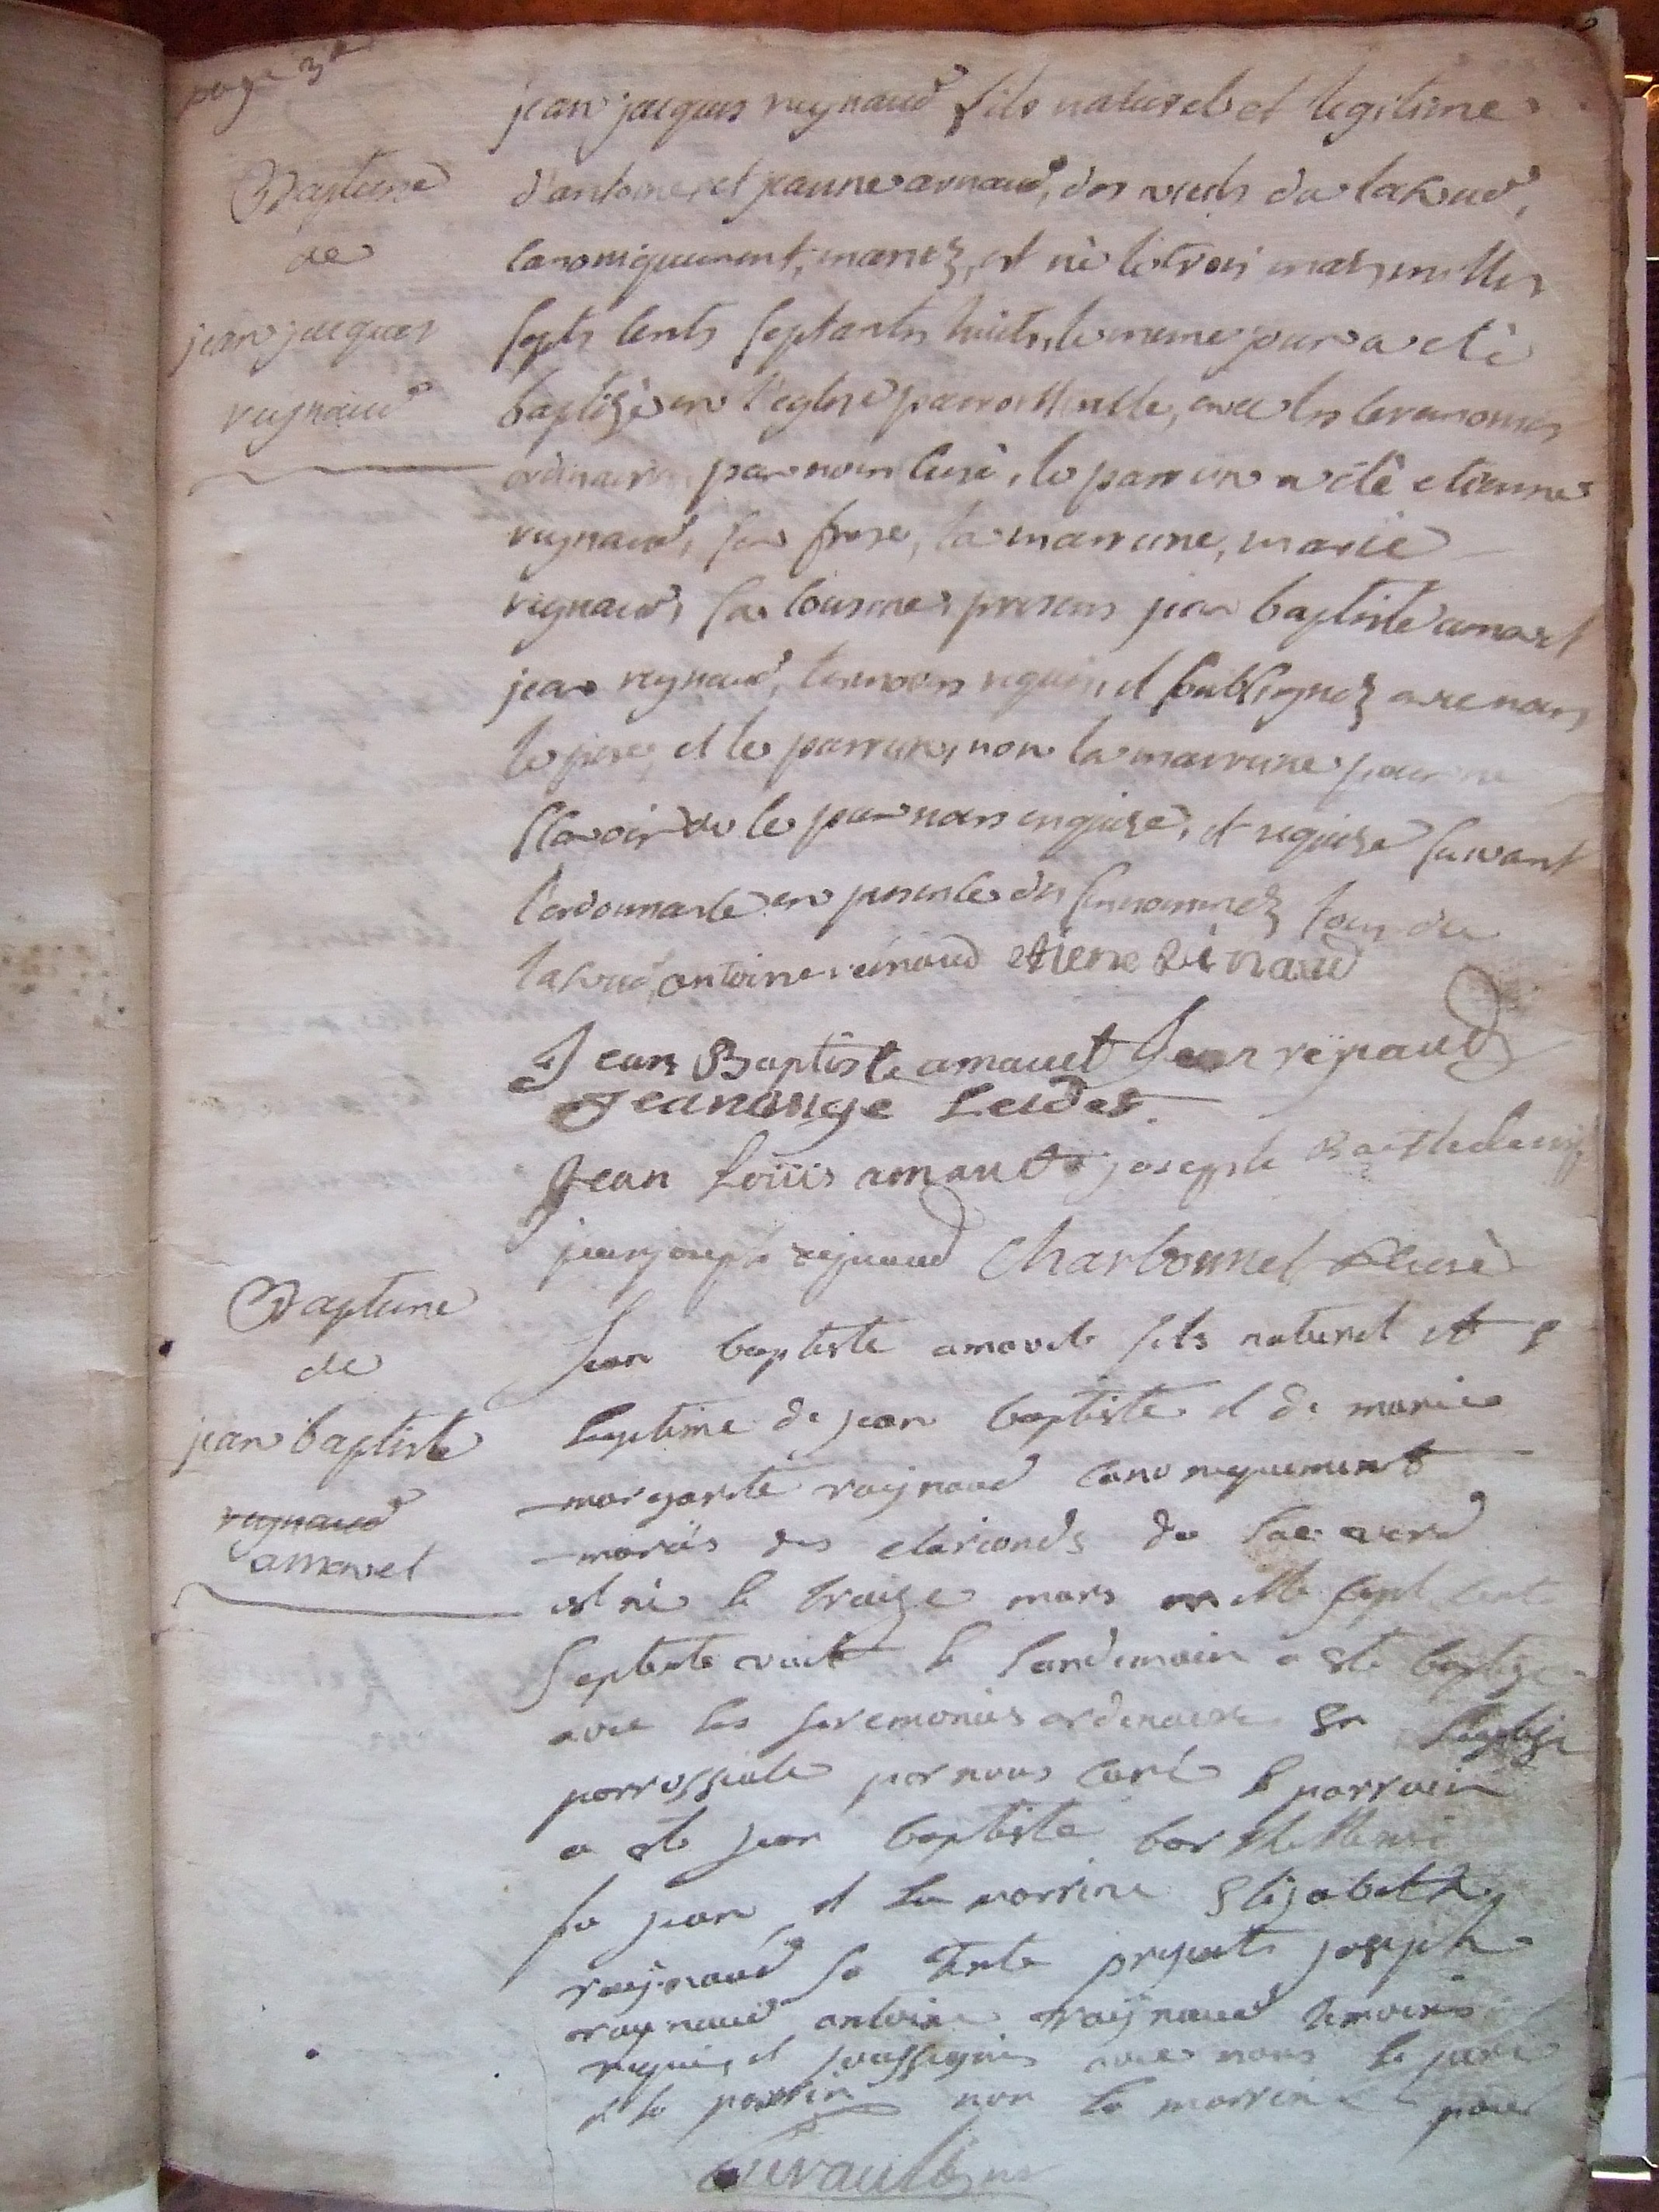 page 3e
Baptême
de
jean jacques
reynaud
jean jacques reynaud fils naturel et legitime
d'antoine, et jeanne arnaud, des vieds du lakaud,
canoniquement, mariez, est né le trois mars, milles
septs cents septantes huits, le meme jour a eté
baptizé en l'eglise parroissielle, avec les ceremonies
ordinaires, par nous curé, le parrein a été etienne
reynaud, son frere, la marreine, marie
reynaud, sa cousine, presens jean baptiste amavet
jean reynaud, temoins requis, et soubsignez avec nous
le pere, et le parrein, non la marreine pour ne
scavoir de ce par nous enquise, et requise suivant
l'ordonnance en presence des susnommez tous du
antoine reinaud etiene Reinaud
Jean Baptiste amavet Jean reynaud
Jeanange
Jean Loüis amavet joseph Barthelemy
jean joseph rejnaud Charbonnel Curé
Baptême
de
jean baptiste
reynaud
amavet
Jean baptiste amavet fils naturel et
legitime de jean baptiste et de marie
margarite raynaud canoniquement
mariés des clarionds du
est né le traize mars mille sept cent
septente vuit le landemain a eté baptizé
avec les seremonies ordenaires en leglize
parrossiale par nous curé le parrain
a eté jean baptiste barthellemi
fu jean et la marrine Elizabeth
raynaud sa tente presents joseph
raynaud antoine raynaud temoins
requis et soussignes avec nous le pere
et le parrin non la marrine pour